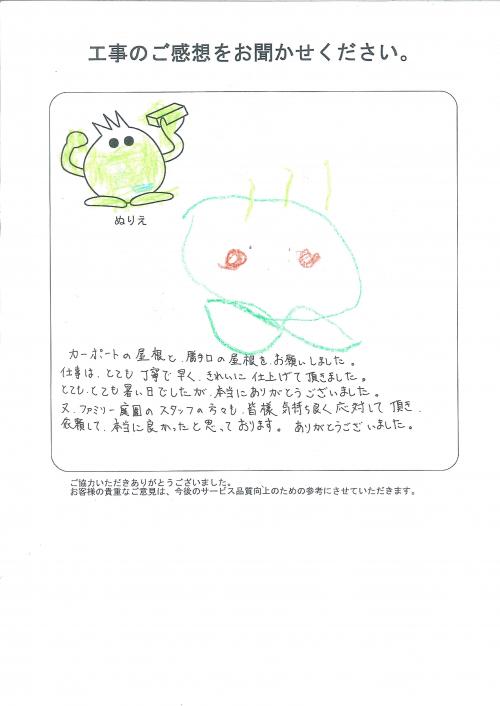 工事のご感想をお聞かせください。
ぬりえ
カーポートの屋根と、勝手口の屋根を、お願いしました。
仕事は、とても丁寧で早く、きれいに仕上げて頂きました。
とても、とても暑い日でしたが、本当にありがとうございました。
又、ファミリー庭園のスタッフの方々も、皆様気持ち良く応対して頂き、
依頼して、本当に良かったと思っております。ありがとうございました。
ご協力いただきありがとうございました。
お客様の貴重なご意見は、今後のサービス品質向上のための参考にさせていただきます。